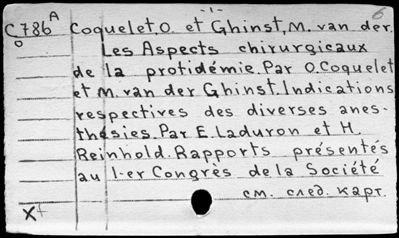 -1-
6
C786 A Coquelet.O. et Ghinst,M. van der.
o
Les Aspects chirurgicaux
de la protidémie.Par O.Coquelet
et M.van der Ghinst.Indications
respectives des diverses anes-
thésies.Par E.Laduron et H.
Reinhold.Rapports présentés
au 1-er Congrès de la Société
см. след. карт.
X+